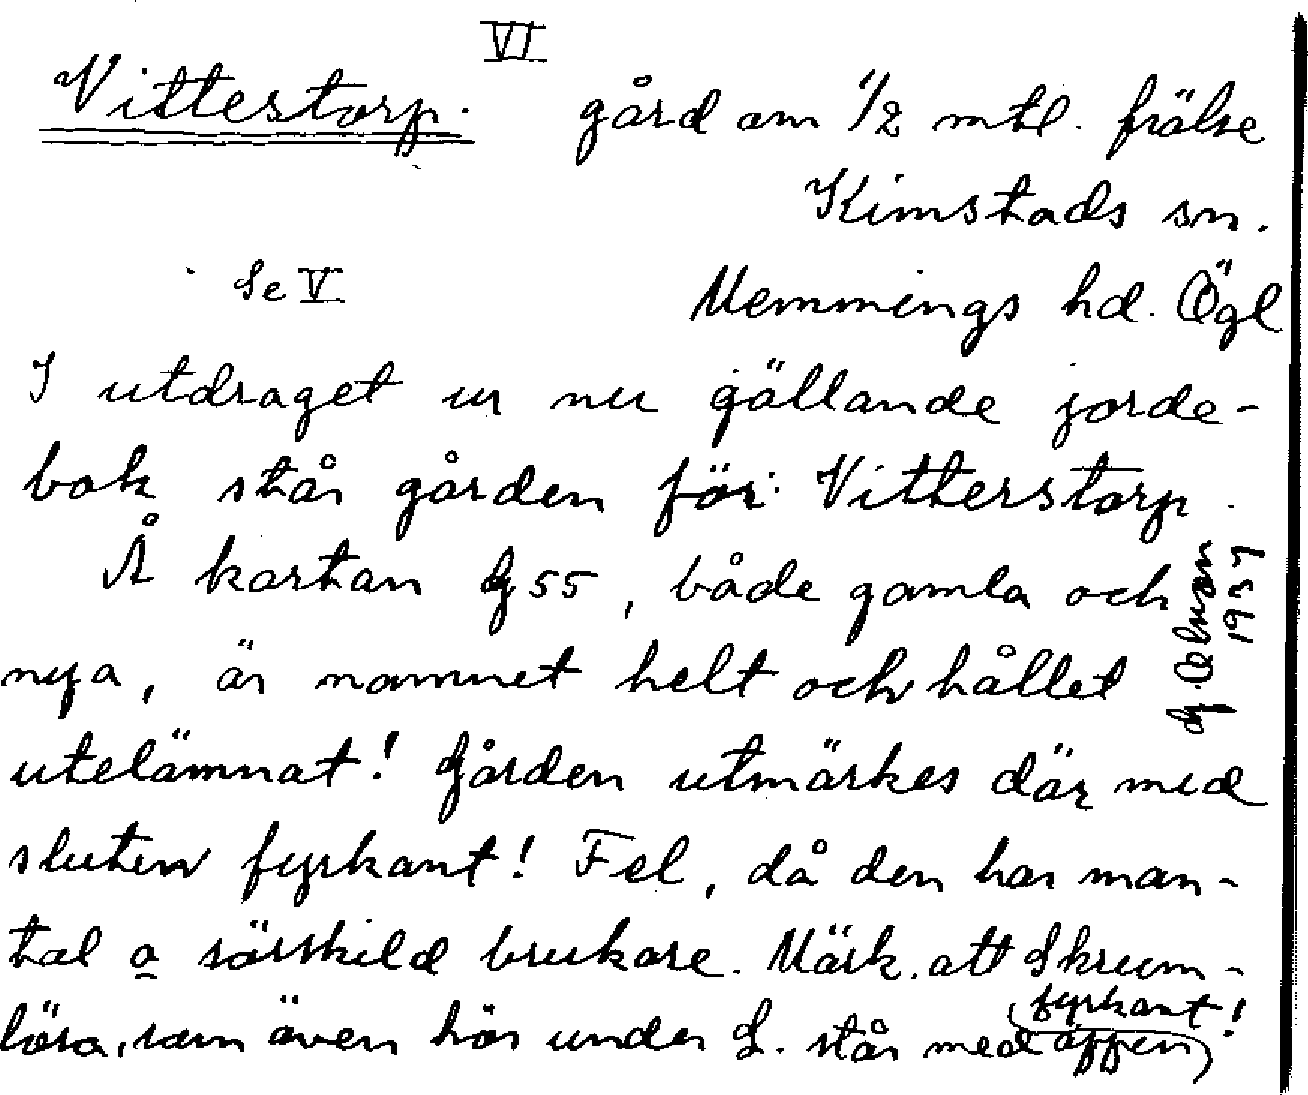 VI
Vittestorp. gård om 1/2 mtl. frälse
Kimstads sn.
Se V Memmings hd. Ögl
I utdraget ur nu gällande jorde-
bok står gården för: Vitterstorp.
Å kartan G 55, både gamla och
nya, är namnet helt och hållet
utelämnat! Gården utmärkes där med
sluten fyrkant! Fel, då den har man-
tal o särskild brukare. Märk. att Skrum-
lösa, som även hör under L. står med öppen
fyrkant!
G. Olsson
1937